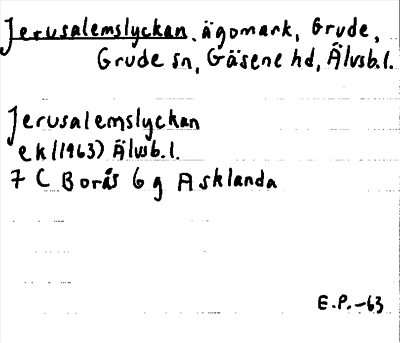 Jerusalemslyckan, ägomark, Grude,
Grude sn, Gäsene hd, Älvsb.l.
Jerusalemslyckan
ek (1963) Älvsb.l.
7 C Borås 6 g Asklanda
E.P.-63